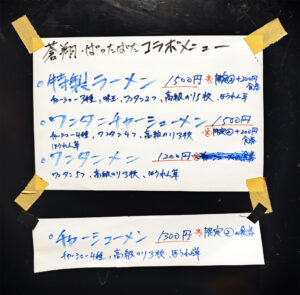 蒼翔・ばったばた コラボメニュー
○特製ラーメン 1500円 ※限定②+200円
食券
チャーシュー3種、味玉、ワンタン2ケ、高級のり5枚、ほうれん草
○ワンタンチャーシューメン 1500円
チャーシュー4種、ワンタン4ケ、高級のり3枚 ※限定②+200円
ほうれん草 食券
○ワンタンメン 1200円
ワンタン5ケ、高級のり3枚、ほうれん草
○チャーシューメン 1300円 ※限定②の食券
チャーシュー4種、高級のり3枚、ほうれん草